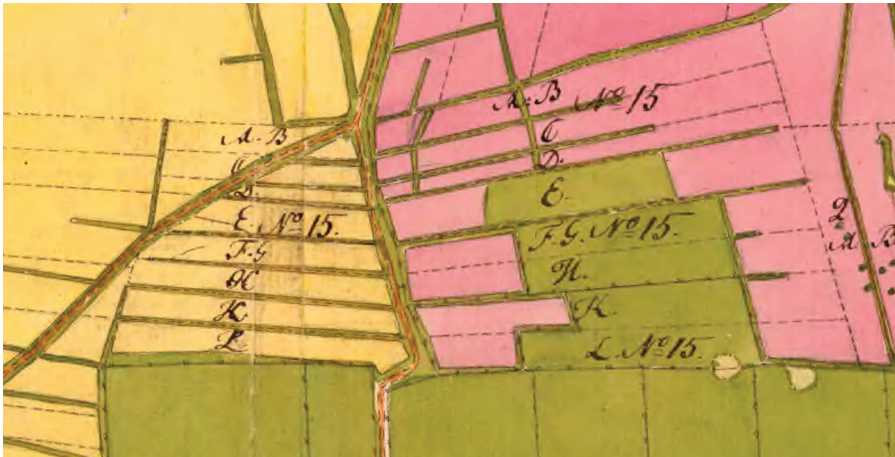 A. B
C
D.
E. No 15.
F. G
H
K.
L
A. B No 15
C
D.
E.
F. G. No 15.
H.
K.
L No 15.
2
A B